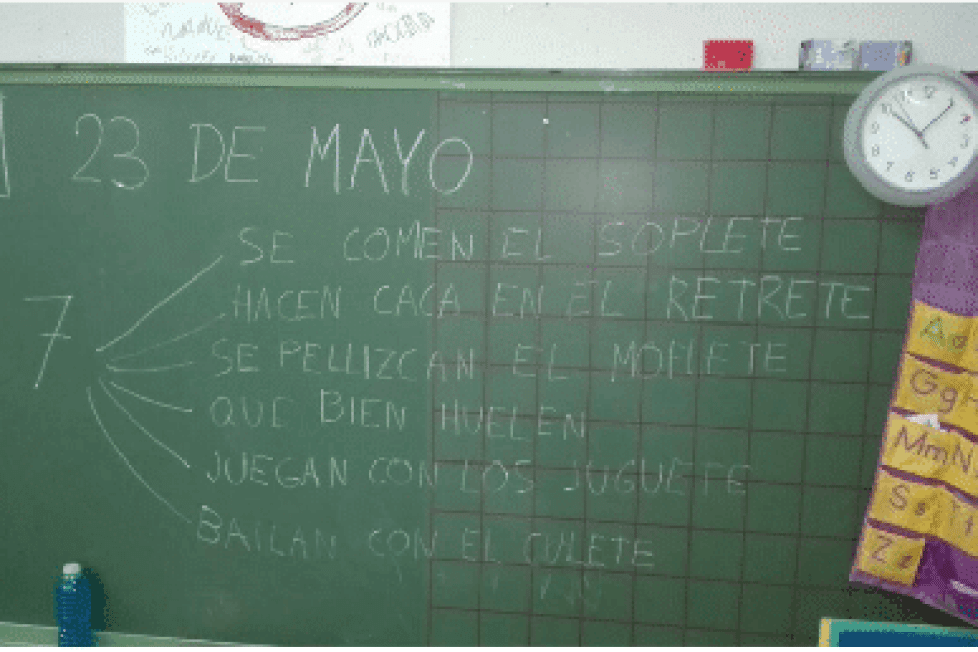 23 DE MAYO
7
SE COMEN EL SOPLETE
HACEN CACA EN EL RETRETE
SE PELLIZCAN EL MOFLETE
QUE BIEN HUELEN
JUEGAN CON LOS JUGUETE
BAILAN CON EL CULETE
A
Gg
MmN
Ss
Z